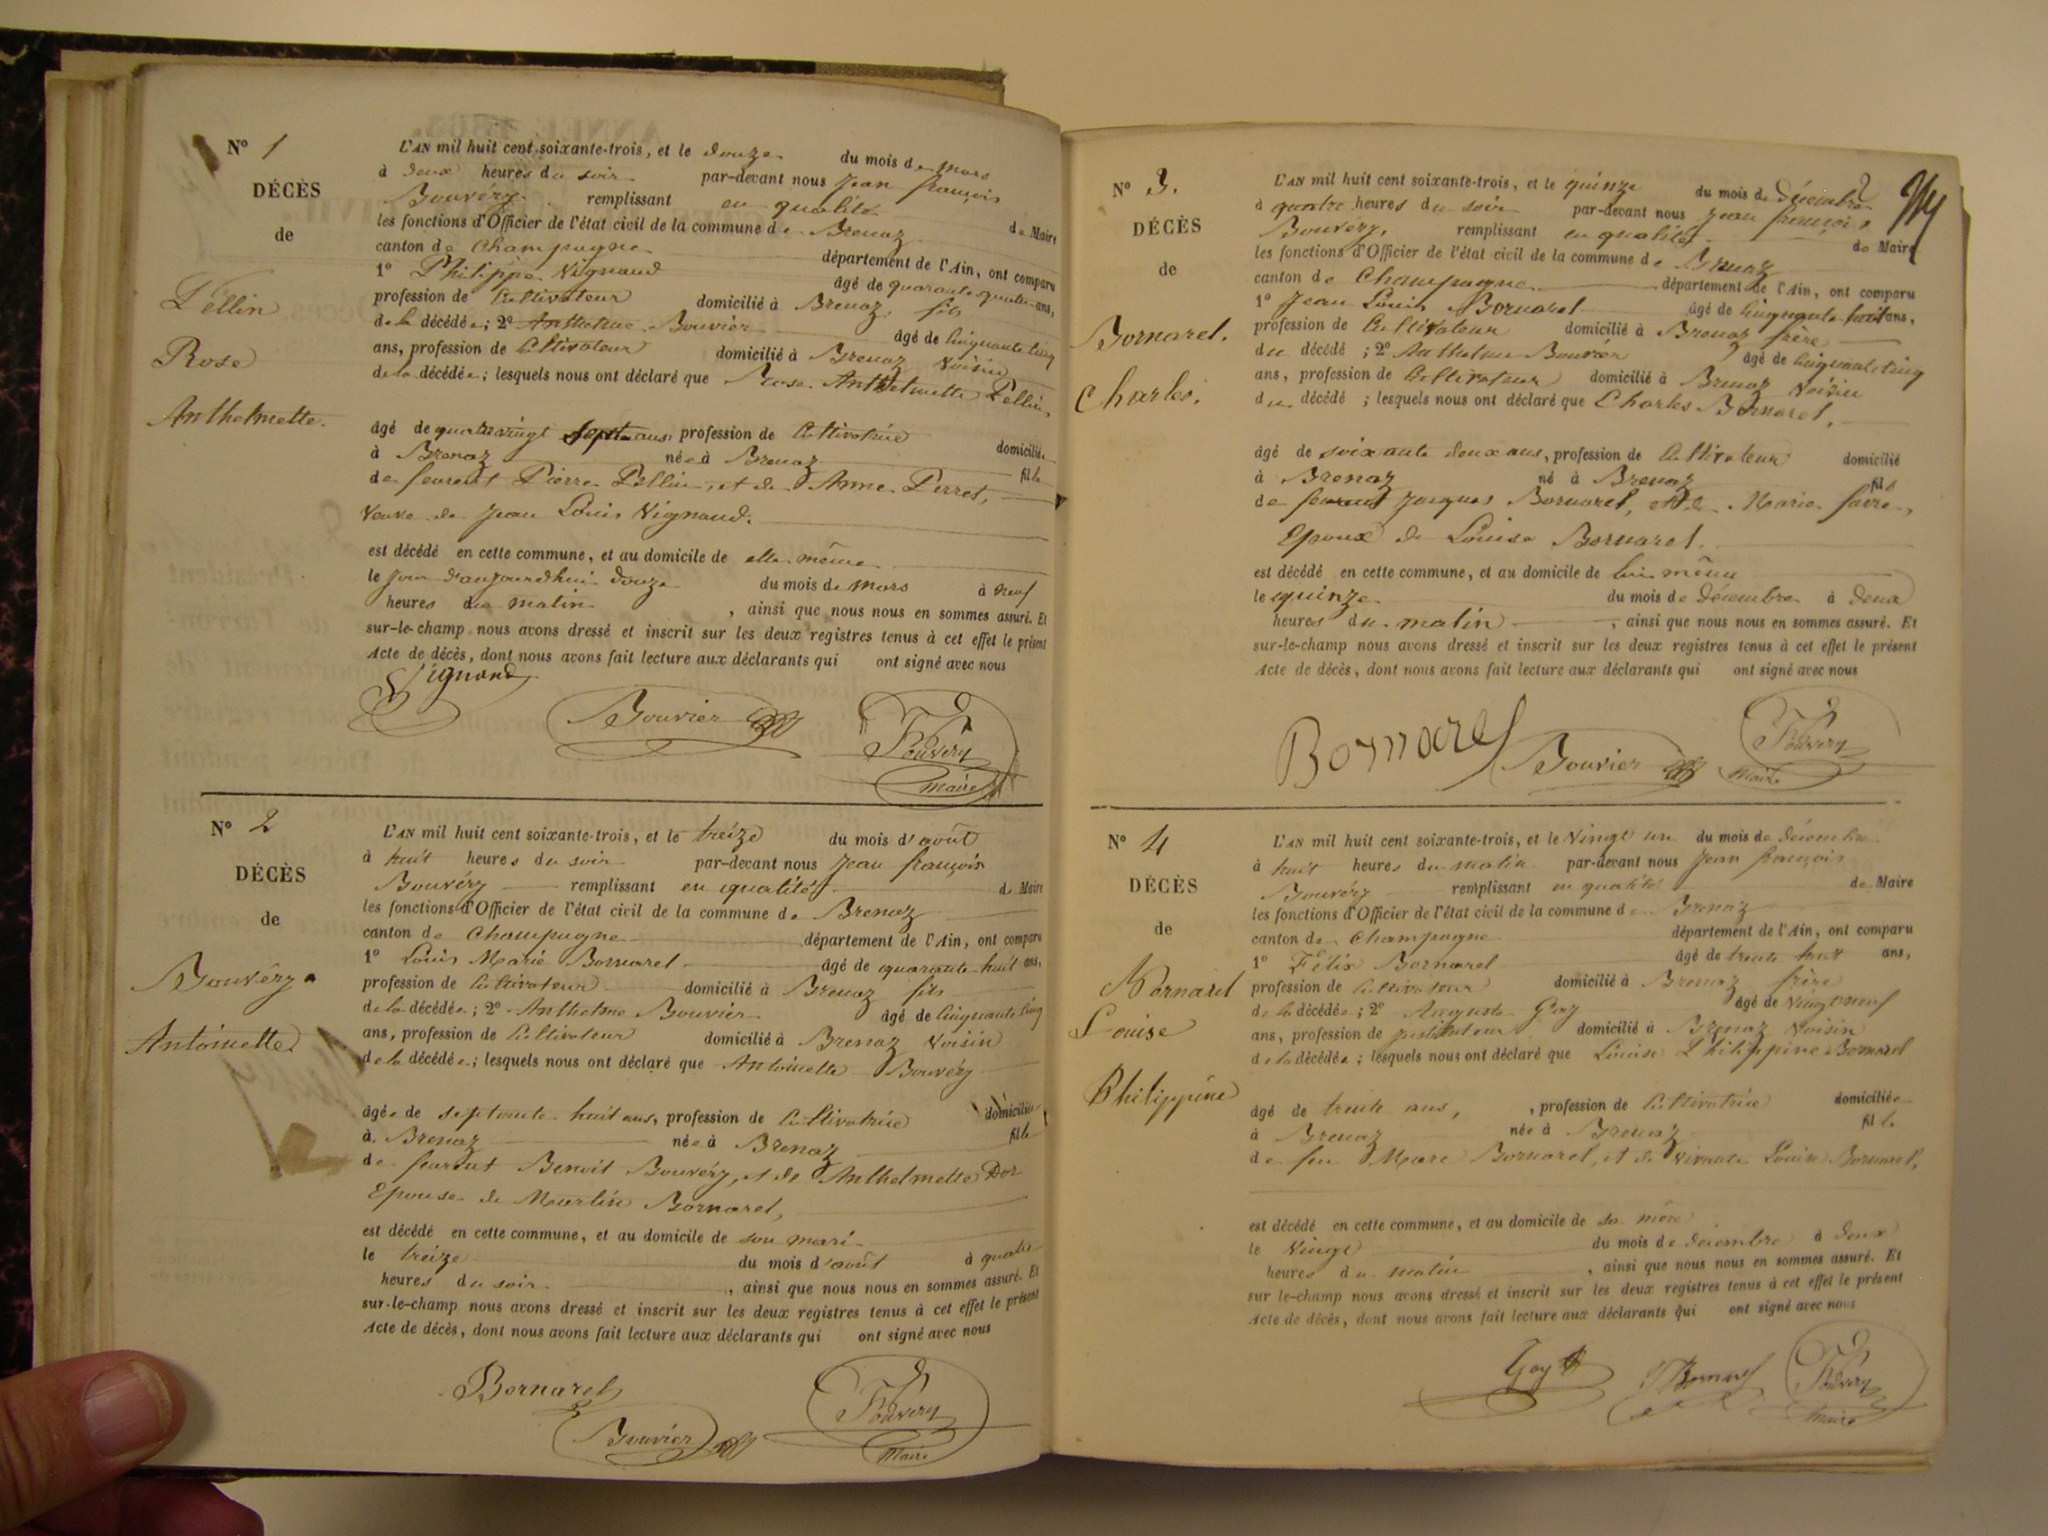 N° 1
DÉCÈS
de
Pellin
Rose
Anthelmette.
L'AN mil huit cent soixante-trois, et le douze du mois de mars
à deux heures du soir par-devant nous Jean françois
Bouvéry remplissant en qualité de Maire
les fonctions d'Officier de l'état civil de la commune de Brenaz
canton de Champagne département de l'Ain, ont comparu
1° Philippe Vignaud âgé de quarante quatre ans,
profession de Cultivateur domicilié à Brenaz, fils
de la décédée; 2° Anthelme Bouvier âgé de Cinquante cinq
ans, profession de Cultivateur domicilié à Brenaz Voisin
de la décédée; lesquels nous ont déclaré que Rose Anthelmette Pellin,
âgé de quatrevingt sept ans, profession de Cultivatrice domiciliée
à Brenaz née à Brenaz fille
de feurent Pierre Pellin, et de Anne Perret,
Veuve de Jean Louis Vignaud.
est décédé en cette commune, et au domicile de elle-même
le jour d'aujourdhui douze du mois de mars à neuf
heures du matin, ainsi que nous nous en sommes assuré. Et
sur-le-champ nous avons dressé et inscrit sur les deux registres tenus à cet effet le présent
Acte de décès, dont nous avons fait lecture aux déclarants qui ont signé avec nous
Vignaud
Bouvier
Bouvery
maire
N° 2
DÉCÈS
de
Bouvéry
Antoinette.
L'AN mil huit cent soixante-trois, et le treize du mois d'août
à huit heures du soir par-devant nous Jean françois
Bouvéry remplissant en qualité de Maire
les fonctions d'Officier de l'état civil de la commune de Brenaz
canton de Champagne département de l'Ain, ont comparu
1° Louis Marie Bornarel âgé de quarante-huit ans,
profession de Cultivateur domicilié à Brenaz fils
de la décédée; 2° Anthelme Bouvier âgé de Cinquante Cinq
ans, profession de Cultivateur domicilié à Brenaz Voisin
de la décédée; lesquels nous ont déclaré que Antoinette Bouvéry
âgée de septante-huit ans, profession de Cultivatrice domiciliée
à Brenaz née à Brenaz fille
de feurent Benoit Bouvéry, et de Anthelmette Dor
Epouse de Martin Bornarel,
est décédé en cette commune, et au domicile de son mari
le treize du mois d'août à quatre
heures du soir, ainsi que nous nous en sommes assuré. Et
sur-le-champ nous avons dressé et inscrit sur les deux registres tenus à cet effet le présent
Acte de décès, dont nous avons fait lecture aux déclarants qui ont signé avec nous
Bornarel
Bouvier
Bouvery
Maire
N° 3.
DÉCÈS
de
Bornarel.
Charles.
L'AN mil huit cent soixante-trois, et le quinze du mois de décembre
à quatre heures du soir par-devant nous Jean françois
Bouvéry, remplissant en qualité de Maire
les fonctions d'Officier de l'état civil de la commune de Brenaz
canton de Champagne département de l'Ain, ont comparu
1° Jean Louis Bornarel âgé de Cinquante-huit ans,
profession de Cultivateur domicilié à Brenaz frère
du décédé; 2° Anthelme Bouvier âgé de Cinquante cinq
ans, profession de Cultivateur domicilié à Brenaz Voisin
du décédé; lesquels nous ont déclaré que Charles Bornarel,
âgé de soixante deux ans, profession de Cultivateur domicilié
à Brenaz né à Brenaz fils
de feurent Jacques Bornarel, et de Marie favre,
Epoux de Louise Bornarel.
est décédé en cette commune, et au domicile de lui même
le quinze du mois de decembre à deux
heures du matin, ainsi que nous nous en sommes assuré. Et
sur-le-champ nous avons dressé et inscrit sur les deux registres tenus à cet effet le présent
Acte de décès, dont nous avons fait lecture aux déclarants qui ont signé avec nous
Bornarel
Bouvier
Bouvery
maire
N° 4
DÉCÈS
de
Bornarel
Louise
Philippine
L'AN mil huit cent soixante-trois, et le Vingt un du mois de décembre
à huit heures du matin par-devant nous Jean françois
Bouvéry remplissant en qualité de Maire
les fonctions d'Officier de l'état civil de la commune de Brenaz
canton de Champagne département de l'Ain, ont comparu
1° Félix Bornarel âgé de trente huit ans,
profession de Cultivateur domicilié à Brenaz frère
de la décédée; 2° Auguste Goy âgé de Vingt neuf
ans, profession de Instituteur domicilié à Brenaz Voisin
de la décédée; lesquels nous ont déclaré que Louise Philippine Bornarel
âgé de trente ans, profession de Cultivatrice domiciliée
à Brenaz née à Brenaz fille
de feu Marc Bornarel, et de Vivante Louise Bornarel,
est décédé en cette commune, et au domicile de sa mère
le Vingt du mois de décembre à deux
heures du matin, ainsi que nous nous en sommes assuré. Et
sur le-champ nous avons dressé et inscrit sur les deux registres tenus à cet effet le présent
Acte de décès, dont nous avons fait lecture aux déclarants qui ont signé avec nous
Goy
Bornarel
Bouvery
maire